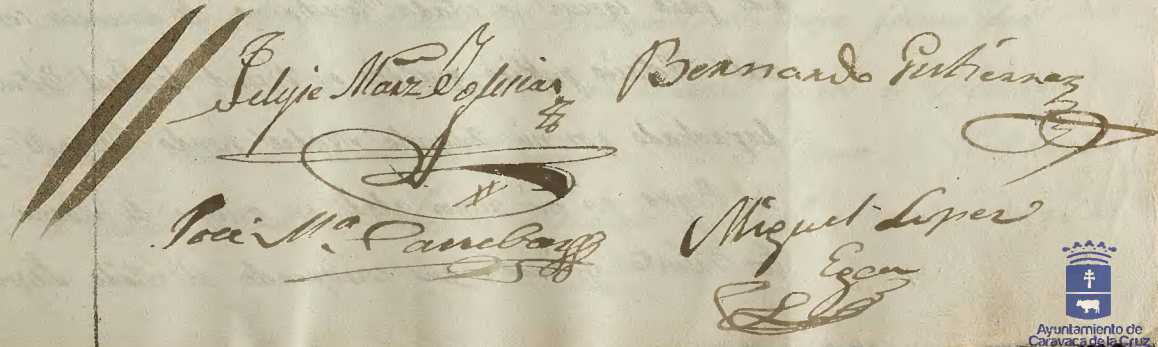 Felipe Marz Iglesias
Bernardo Gutierrez
José Mª
Miguel Lopez
Egea
Ayuntamiento de
Caravaca de la Cruz